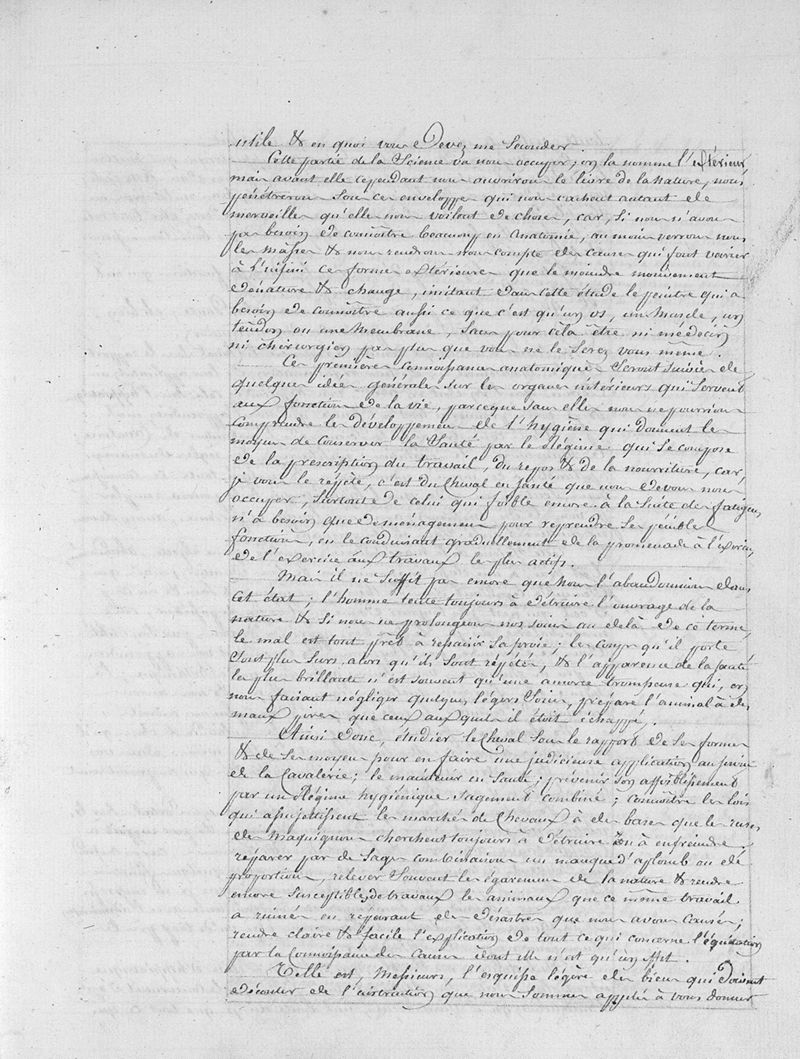 utile & en quoi vous Devez me Seconder.
Cette partie de la Science va nous occuper, on la nomme l'extérieur
mais avant elle cependant nous ouvrirons le livre de la Nature, nous
pénétrerons Sous ces enveloppes qui nous cachent autant de
merveilles qu'elles nous voilent de choses, car, Si nous n'avons
pas besoin de connoître beaucoup en anatomie, au moins verrons nous
les masses & nous rendrons nous compte des Causes qui font varier
à l'infini ces formes extérieures que le moindre mouvement
dénature & change, imitant dans cette étude le peintre qui a
besoin de connoître aussi ce que c'est qu'un os, un Muscle, un
tendon ou une Membrane, Sans pour cela être ni médecin
ni chirurgien pas plus que vous ne le Serez vous même.
Ces premières connoissances anatomiques Seront Suivies de
quelques idées générales sur les organes intérieurs qui Servent
aux fonctions de la vie, parceque Sans elles nous ne pourrions
comprendre les développemens de l'hygiène qui donnent les
moyens de conserver la Santé par le Régime qui Se compose
de la prescription du travail, du repos & de la nourriture, car,
je vous le répète, c'est du Cheval en Santé que nous devons nous
occuper, Surtout de celui qui foible encore à la Suite des fatigues,
n'a besoin que de ménagemens pour reprendre Ses pénibles
fonctions, en le conduisant graduellement de la promenade à l'exercice,
de l'exercice aux travaux les plus actifs.
Mais il ne Suffit pas encore que nous l'abandonnions dans
cet état; l'homme tente toujours à détruire l'ouvrage de la
nature & Si nous ne prolongeons nos soins au delà de ce terme,
le mal est tout prêt à ressaisir Sa proie; les coups qu'il porte
Sont plus Surs alors qu'ils Sont répétés, & l'apparence de la Santé
la plus brillante n'est Souvent qu'une amorce trompeuse qui, en
nous faisant négliger quelques légers Soins, prépare l'animal à des
maux pires que ceux auxquels il étoit échappé.
Ainsi donc, étudier le Cheval Sous le rapport de Ses formes
& de Ses moyens pour en faire une judicieuse application au Service
de la Cavalerie; le maintenir en Santé; prévenir Son affoiblissement
par un Régime hygiénique Sagement combiné; connoître les lois
qui assujettissent les marchés de Chevaux à des bases que les ruses
des Maquignons cherchent toujours à détruire ou à enfreindre;
réparer par de Sages combinaisons un manque d'aplomb ou de
proportions, relever Souvent les égaremens de la nature & rendre
encore Susceptibles de travaux les animaux que ce même travail
a ruinés en réparant des désastres que nous avons Causés;
rendre claire & facile l'explication de tout ce qui concerne l'équitation
par la Connoissance des Causes dont elle n'est qu'un effet.
Telle est, Messieurs, l'esquisse légère des biens qui doivent
découler de l'instruction que nous Sommes appelés à vous donner